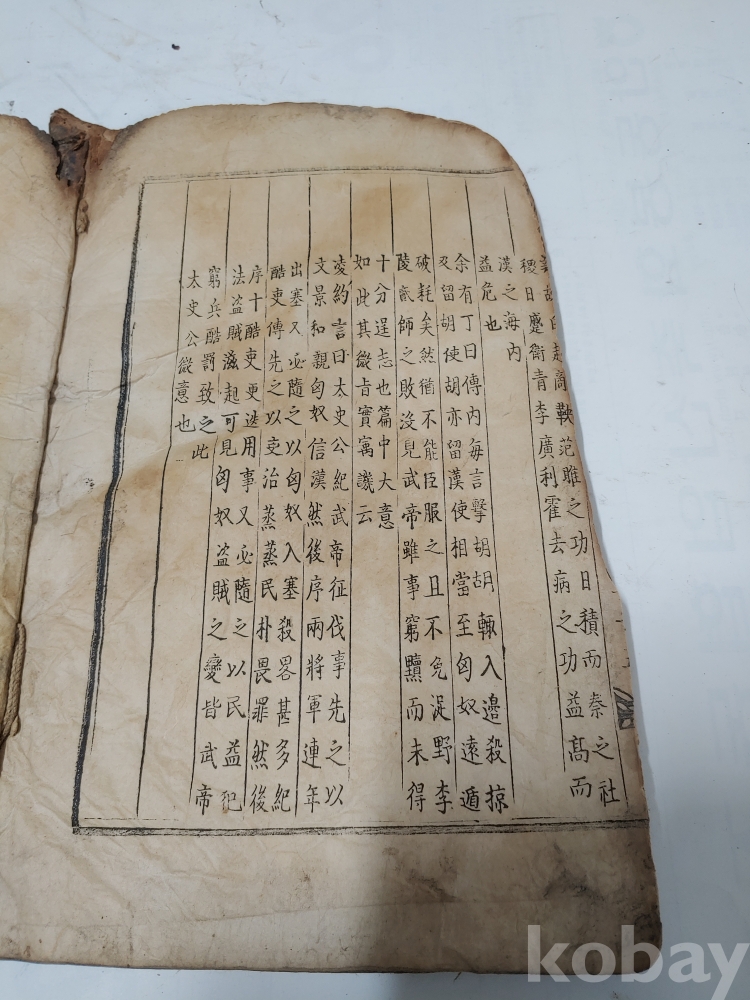 白起商鞅范雎之功日積而秦之社
稷日蹙衛青李廣利霍去病之功益髙而
漢之海内
益危也
余有丁曰傳内每言擊胡胡輙入邊殺掠
及留胡使胡亦留漢使相當至匈奴遠遁
破耗矣然猶不能臣服之且不免浞野李
陵貳師之敗没見武帝雖事窮黷而未得
十分逞志也篇中大意
如此其微旨實寓譏云
凌約言曰太史公紀武帝征伐事先之以
文景和親匈奴信漢然後序兩將軍連年
出塞又必隨之以匈奴入塞殺畧甚多紀
酷吏傳先之以吏治蒸蒸民朴畏罪然後
序十酷吏更迭用事又必隨之以民益犯
法盗賊滋起可見匈奴盗賊之變皆武帝
窮兵酷罰致之此
太史公微意也
kobay